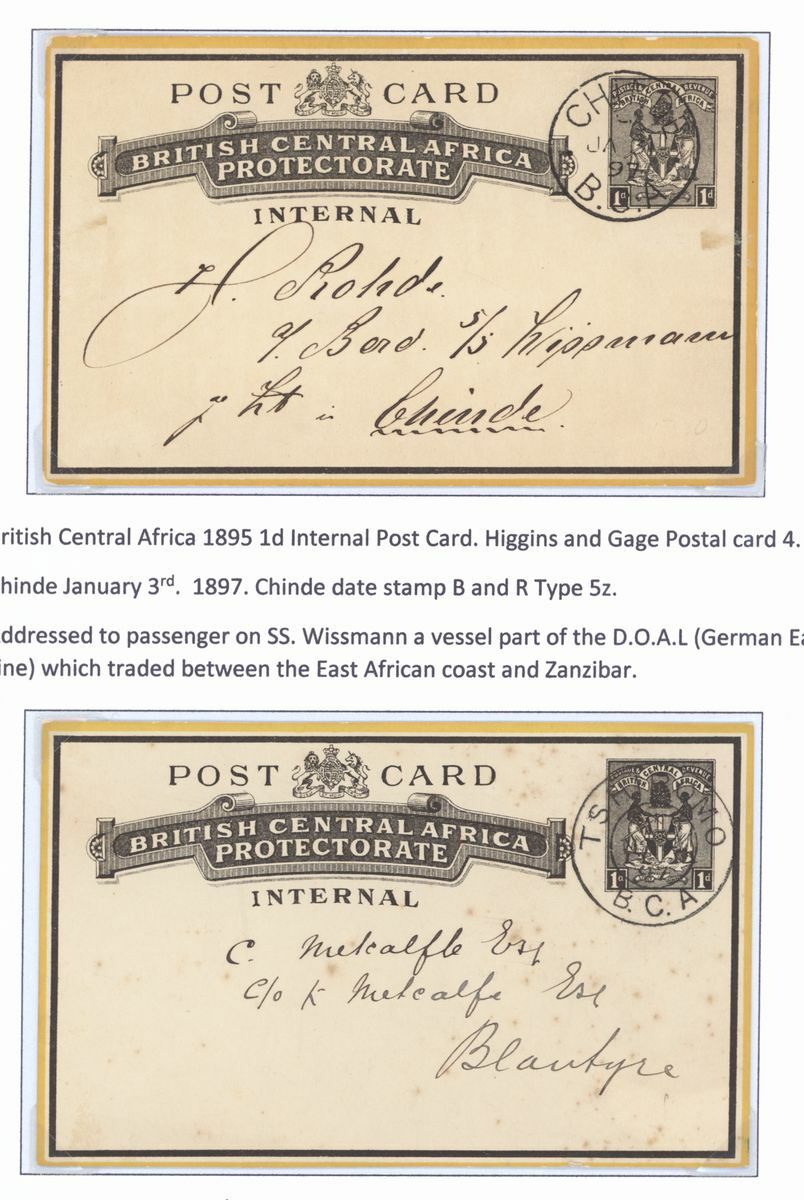 POST CARD
BRITISH CENTRAL AFRICA
PROTECTORATE
INTERNAL
POSTAGE CENTRAL REVENUE
BRITISH AFRICA
1d 1d
CH
JA
97
B.C.A
H. Rohde.
Bord. s/s Wissmann
Chinde.
ritish Central Africa 1895 1d Internal Post Card. Higgins and Gage Postal card 4.
hinde January 3rd. 1897. Chinde date stamp B and R Type 5z.
ddressed to passenger on SS. Wissmann a vessel part of the D.O.A.L (German Ea
ine) which traded between the East African coast and Zanzibar.
POST CARD
BRITISH CENTRAL AFRICA
PROTECTORATE
INTERNAL
CENTRAL REVENUE
BRITISH AFRICA
1d 1d
TS MO
B.C.A
C. Metcalfle Esq
c/o K Metcalfe Esq
Blantyre